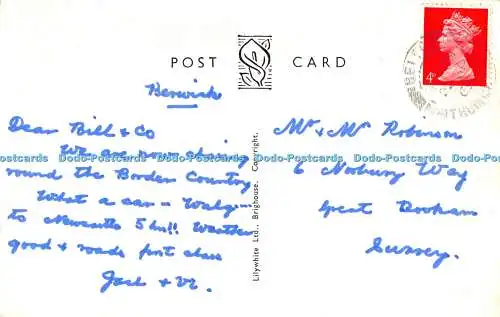 POST CARD
4D
Berwick
Dear Bill & Co
We are now
round the Border Country
What a car —
to Newcastle 5 hrs!! Weather
good & roads first class
Jack & Vi.
Lilywhite Ltd., Brighouse. Copyright.
Mr & Mrs Robinson
6 Norbury Way
Great Bookham
Surrey.
Dodo-Postcards Dodo-Postcards Dodo-Postcards Dodo-Postcards Dodo-Postcards